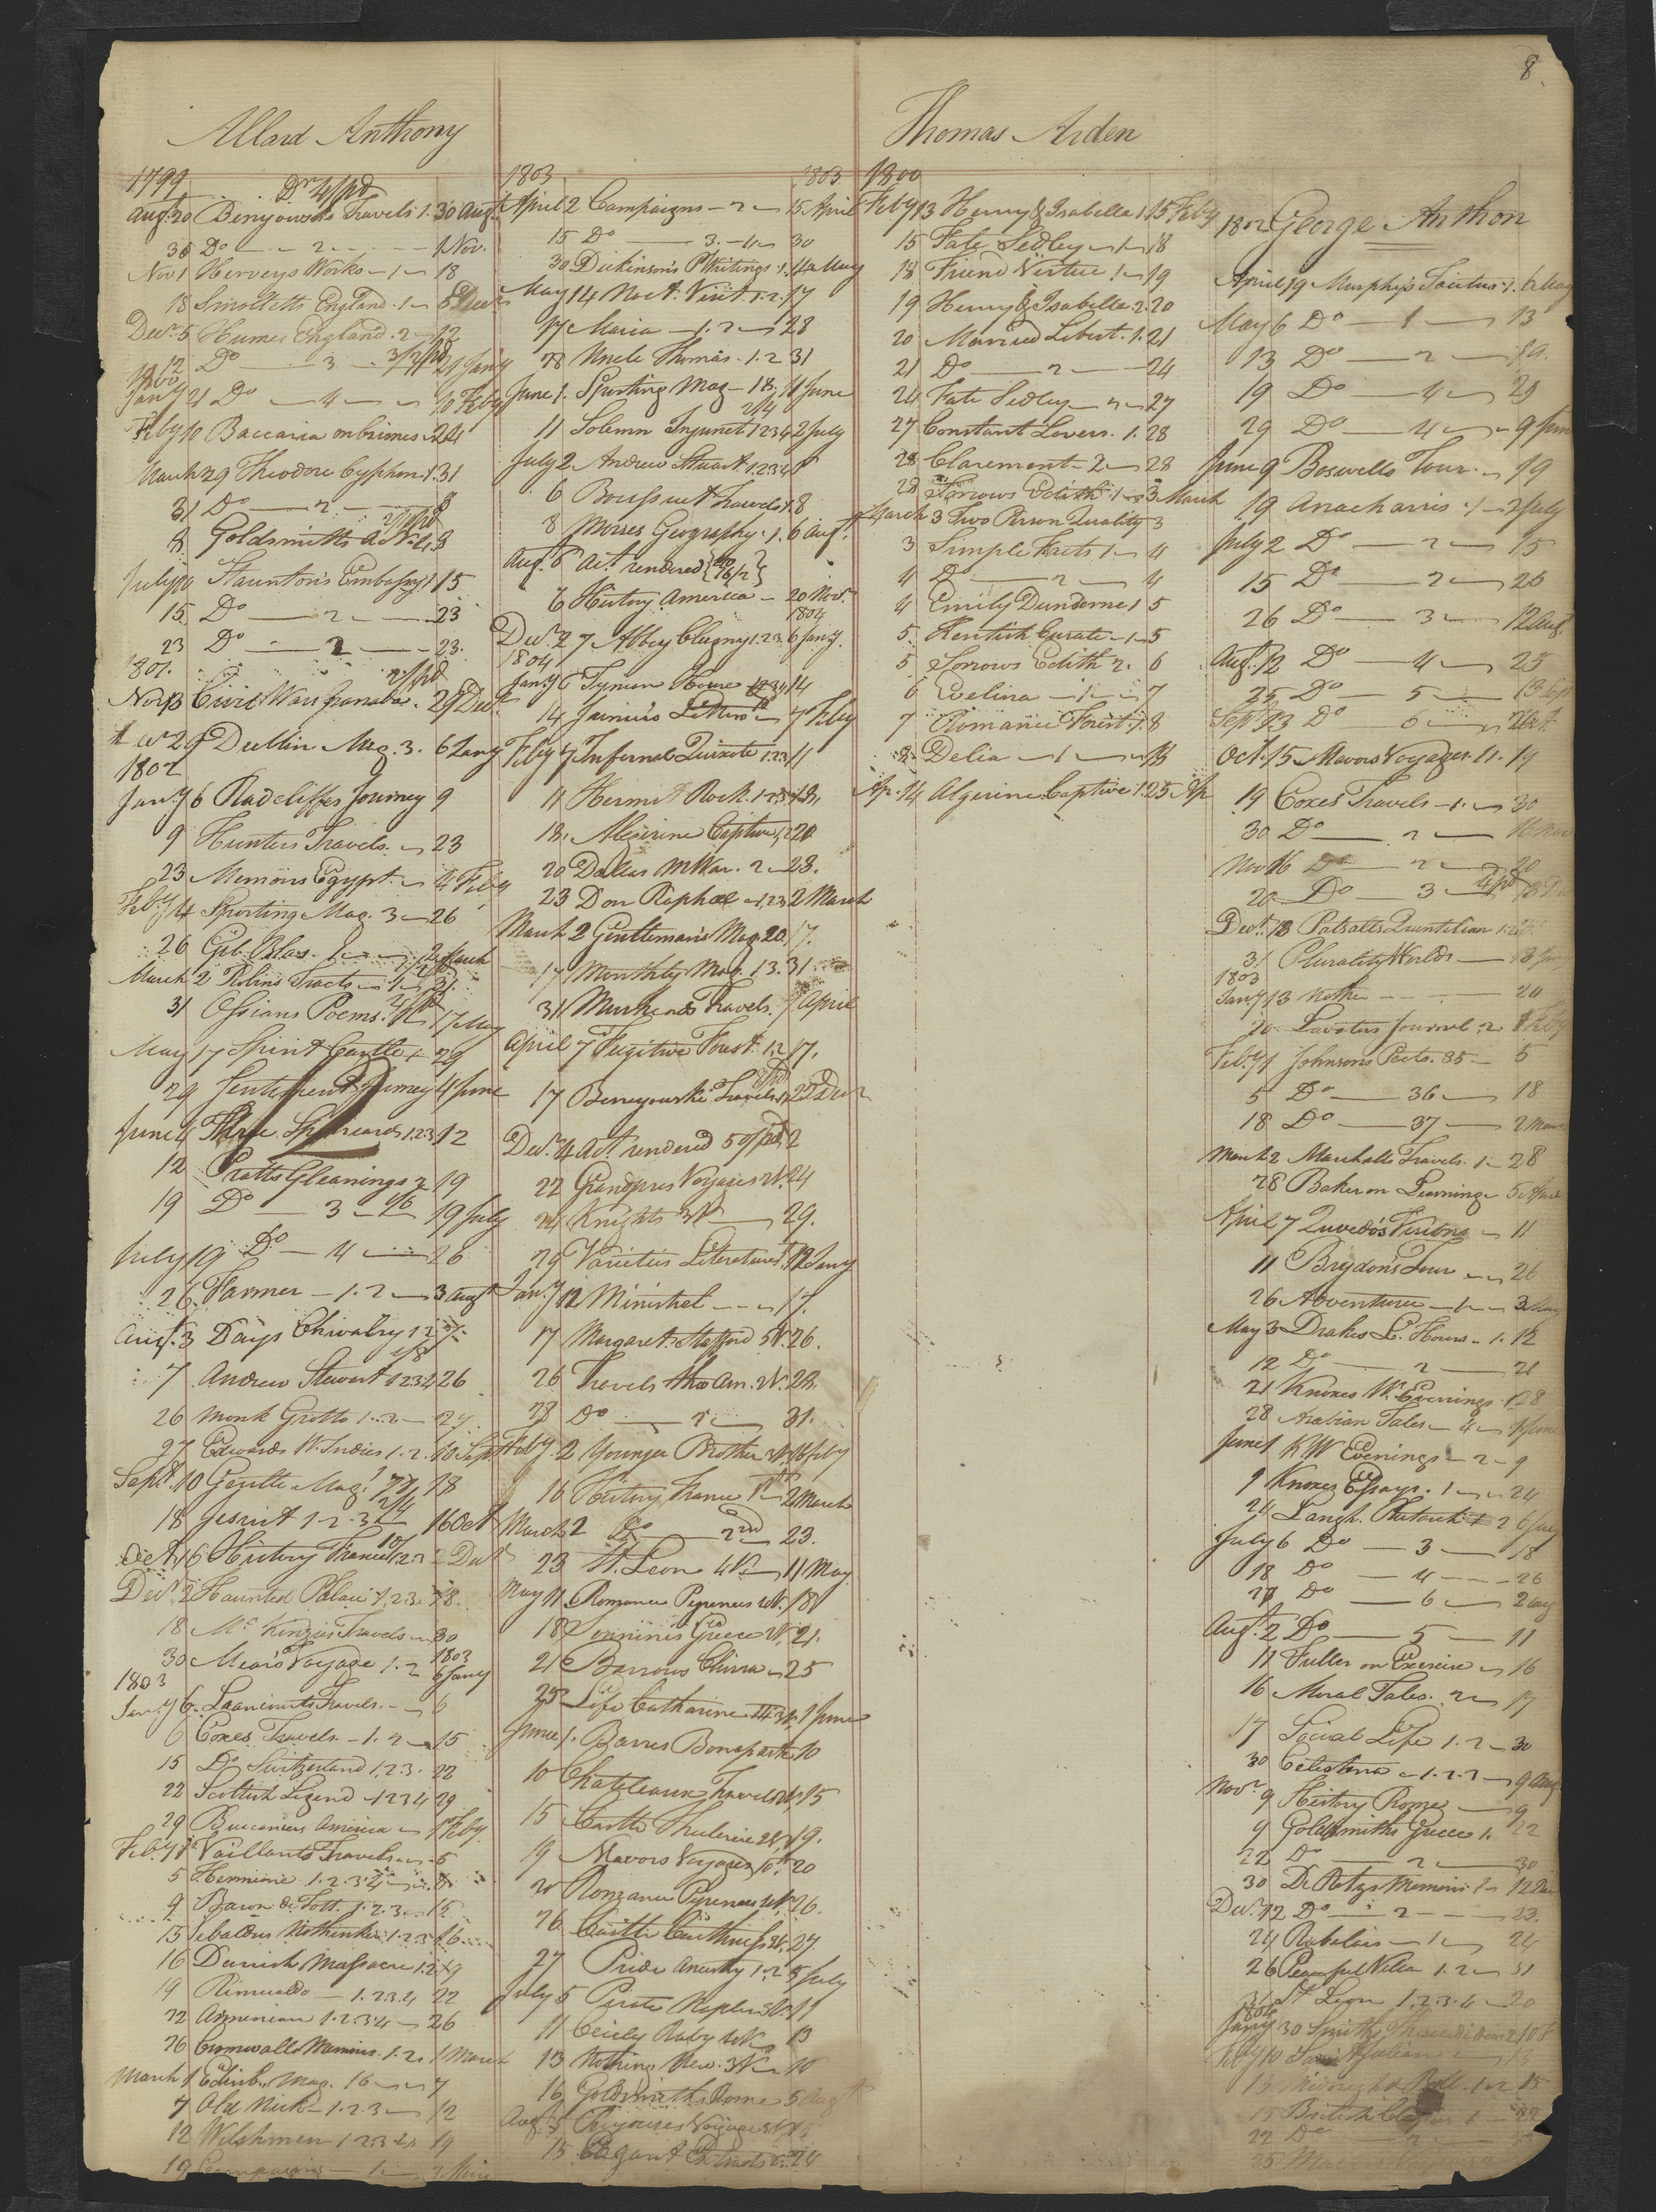 8
Allard Anthony
1799
Dr 4/pd
Augt 20 Benyowskis Travels 1. 30 Augt
30 Do 2 1 Nov.
Nov 1 Herveys Works 1 18
18 Smolletts England 1 5 Decr
Decr 5 Humes England 2 12
12 Do 3 21 Jany
Jany 21 Do 4 10 Feby
Feby 10 Baccaria on Crimes 24
March 29 Theodore Cyphon 1. 31
31 Do 2 8
8 Goldsmiths 8
July 10 Stauntons Embassy 1 15
15 Do 2 23
23 Do 2 23
1801.
2/pd
Nov 13 Civil Wars Granada 29 Decr
Decr 29 Dublin Mag. 3. 6 Jany
1802
Jany 6 Radcliffes Journey 9
9 Hunters Travels 23
23 Memoirs Egypt 4 Feby
Feby 4 Sporting Mag. 3 26
26 Gil Blas 1 2 March
March 2 Robins Tracts 1 31
31 Ossians Poems 17 May
May 17 Spirit Castle 29
29 Sentiment Journey 4 June
June 4 Spaniards 1.2.3 12
12 Pratts Gleanings 2 19
19 Do 3 19 July
July 19 Do 4 26
26 Farmer 1.2 3 Augt
Augt 3 Days Chivalry 1 2 7
7 Andrew Stewart 1 2 3 4 26
26 Monk Grotto 1.2 27
27 Edwards W. Indies 1.2. 10 Sept
Sept. 10 Gentle Mag. 18
18 Jesuit 1.2.3 16 Oct
Oct. 16 History France 1 2 3 2 Decr
Decr 2 Haunted Palace 1.2.3. 18
18 McKinzies Travels 30
30 Mears Voyage 1.2 6 Jany
1803
1803
Jany 6 Liancourts Travels 6
6 Coxes Travels 1.2 15
15 Do Switzerland 1.2.3. 22
22 Scottish Legend 1 2 3 4 29
29 Buccaniers America 1 Feby
Feby 1 Vaillants Travels 5
5 Hermione 1.2.3.4
9 Baron de Tott 1.2.3 15
15 Sebaldus Nothanker 1.2.3 16
16 Danish Massacre 1.2 19
19 Rimualdo 1.2.3.4 22
22 Armenian 1.2.3.4 26
26 Cornwalls Memoirs 1.2. 1 March
March 1 Edinb. Mag. 16 7
7 Old Nick 1.2.3 12
12 Welshmen 1 2 3 4 19
19 Campaigns 1
1803 1803
April 2 Campaigns 2 15 April
15 Do 3.4 30
30 Dickinsons P Writings 1. 14 May
May 14 Noct. Visit 1.2. 17
17 Maria 1.2 28
28 Uncle Thomas 1.2 31
June 1. Sporting Mag 18. 11 June
11 Solemn Injunct 1 2 3 4 2 July
July 2 Andrew Stuart 1 2 3 4
6 Boufsuet Travels 1. 8
8 Morses Geography 1. 6 Augt
Aug. 6 Act rendered
6 History America 20 Nov.
1804
Decr 27 Abbey Clugny 1.2.3. 6 Jany
1804
Jany 6 Tynian House 14
14 Junius Letters 7 Feby
Feby 7 Infernal Quixote 1.2.3 11
11 Hermit Rock 1.2.3 18.
18. Algerine Captive 1.2 20
20 Dallas M War. 2 23.
23 Don Raphael 1.2.3 2 March
March 2 Gentlemans Mag 20. 17.
17 Monthly Mag. 13. 31.
31 Travels. 7 April
April 7 Fugitive Forest 1.2 17.
17 Benyowskie Travels
Decr 4 Act rendered 50/pd 2
22 Grandpres Voyages 2V. 24
24 Knights 3V 29.
29 Varieties Literature 12 Jany
Jany 12 Minstrel 17.
17 Margaret Stafford 5V. 26.
26 Travels thro Am. 2V. 28.
28 Do 2 31.
Feby 2 Younger Brother 3V. 16 feby
16 History France 1st 2 March
March 2 Do 2nd 23.
23 St. Leon 4V 11 May
May 11 Romance Pyrenees 4V. 18
18 Sonninis Greece 2V. 21.
21 Barrows China 25
25 Life Catharine II 3V. 1 June
June 1. Barres Bonaparte 10
10 Chateleaux Travels 2V. 15
15 Castle Thulerie 2V. 19.
19 Mavors Voyages 6th 20
20 Romance Pyrenees 4V. 26.
26 Castle Caithness 2V. 27.
27 Pride Ancestry 1.2 5 July
July 5 Pirate Naples 3V. 11
11 Cecily Raby 4V. 13
13 Nothing New. 3V 16
16 Goldsmiths Rome 5 Augt
Augt 5 Perouses Voyage 3V 15
15 Elegant Extracts 24
Thomas Arden
1800
Feby 13 Henry & Isabella 1 15 Feby
15 Fate Sedley 1 18
18 Friend Virtue 1 19
19 Henry & Isabella 2. 20
20 Married Libert. 1. 21
21 Do 2 24
24 Fate Sedley 2 27
27 Constant Lovers. 1. 28
28 Claremont 2 28
28 Sorrows Edith 1 3 March
March 3 Two Person Quality 3
3 Simple Facts 1 4
4 Do 2 4
4 Emily Dundorne 1 5
5 Kentish Curate 1 5
5 Sorrows Edith 2. 6
6 Evelina 1 7
7 Romance Forest 1. 8
8 Delia 1 13
Ap. 14 Algerine Captive 1. 25 Ap
1802 George Anthon
April 19 Murphys Tacitus 1. 6 May
May 6 Do 1 13
13 Do 2 19.
19 Do 4 29
29 Do 4 9 June
June 9 Boswells Tour 19
19 Anacharsis 1 2 July
July 2 Do 2 15
15 Do 2 26
26 Do 3 12 Aug.
Augt. 12 Do 4 25
25 Do 5 13 Sep
Sept. 13 Do 6
Oct. 15 Mavors Voyages 11. 19
19 Coxes Travels 1. 30
30 Do 2 16 Nov
Nov 16 Do 2 20
20 Do 3
Decr. 18 Patsalls Quintilian 1.
31 Plurality Worlds 13 Jany
1803
Jany 13 Mother 20
20 Lavaters Journal 2 1 Feby
Feby 1 Johnsons Poets. 35 5
5 Do 36 18
18 Do 37 2 March
March 2 Marshalls Travels. 1 28
28 Baker on Learning 5 April
April 7 Quevedos Visions 11
11 Brydons Tour 26
26 Adventurer 1 3 May
May 3 Drakes L. Hours 1. 12
12 Do 2 21
21 Knoxes W. Evenings 1 28
28 Arabian Tales 4 1 June
June 1 K W Evenings 2 9
9 Knoxes Essays. 1 24
24 Langh. Plutarch 1 2 6 July
July 6 Do 3 18
18 Do 4 26
27 Do 6 2 aug
Augt. 2 Do 5 11
11 Fuller on Exercise 16
16 Moral Tales. 2 17
17 Social Life 1.2 30
30 Celestina 1.2.3 9
Novr. 9 History Rome 9
9 Goldsmiths Greece 1. 22
22 Do 2 30
30 De Retzs Memoirs 1 12 Decr
Decr. 12 Do 2 23.
24 Rabalais 1 24
26 Peaceful Villa 1.2 31
31 St Leon 1.2.3.4 20
1804
Jany 30 Smiths
Feby 10
13 Midnight Bell. 1.2 15
15 British Classics 1 22
22 Do 2
25